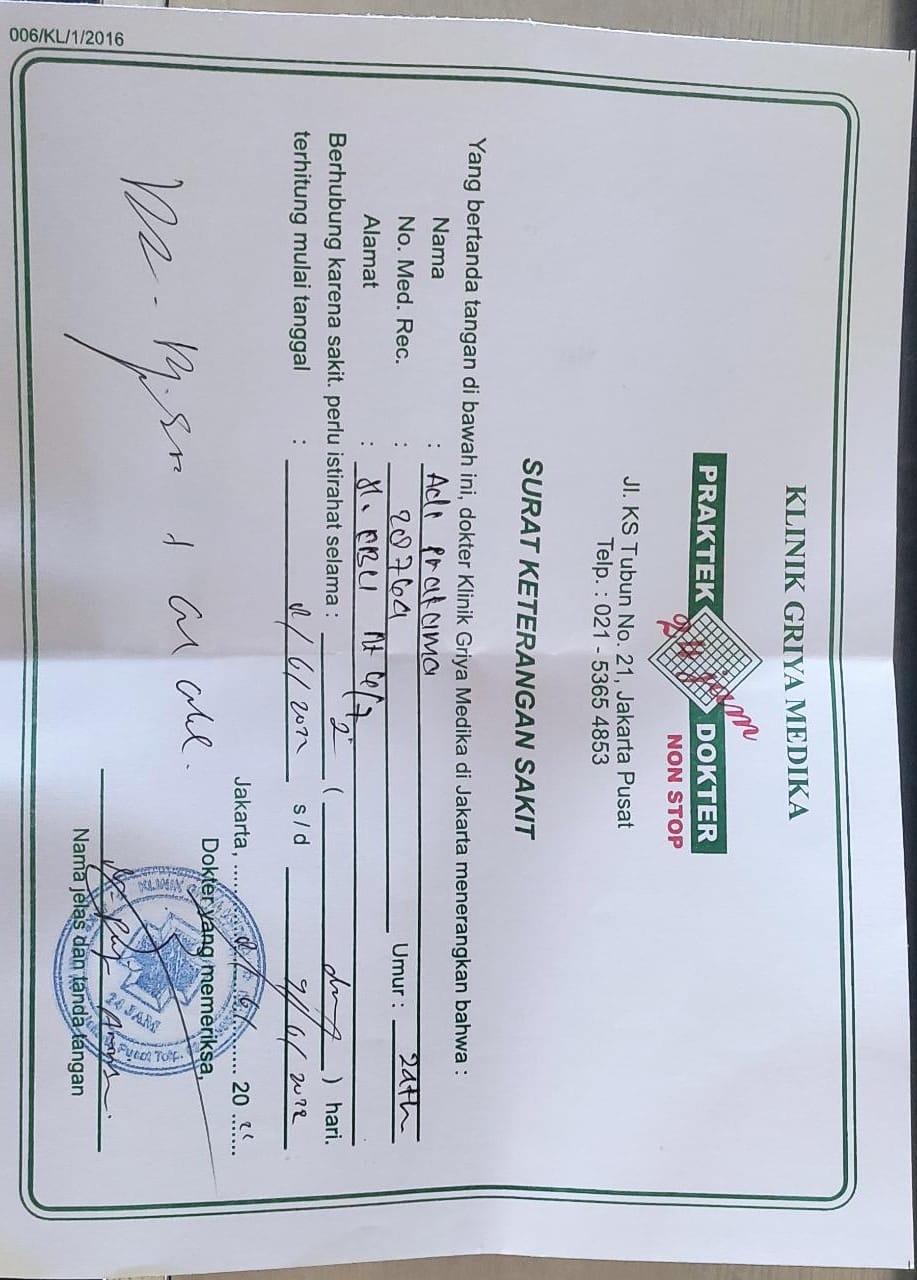 006/KL/1/2016
KLINIK GRIYA MEDIKA
PRAKTEK DOKTER
24 jam
NON STOP
Jl. KS Tubun No. 21, Jakarta Pusat
Telp. : 021 - 5365 4853
SURAT KETERANGAN SAKIT
Yang bertanda tangan di bawah ini, dokter Klinik Griya Medika di Jakarta menerangkan bahwa :
Nama : Adi Pratama
No. Med. Rec. : 28764 Umur : 24th
Alamat :
Berhubung karena sakit. perlu istirahat selama : 2 ( dua ) hari.
terhitung mulai tanggal : 8/6/2022 s/d 9/6/2022
Jakarta, 8/6/ 20 22
Dokter yang memeriksa,
KLINIK
24 JAM
Nama jelas dan tanda tangan